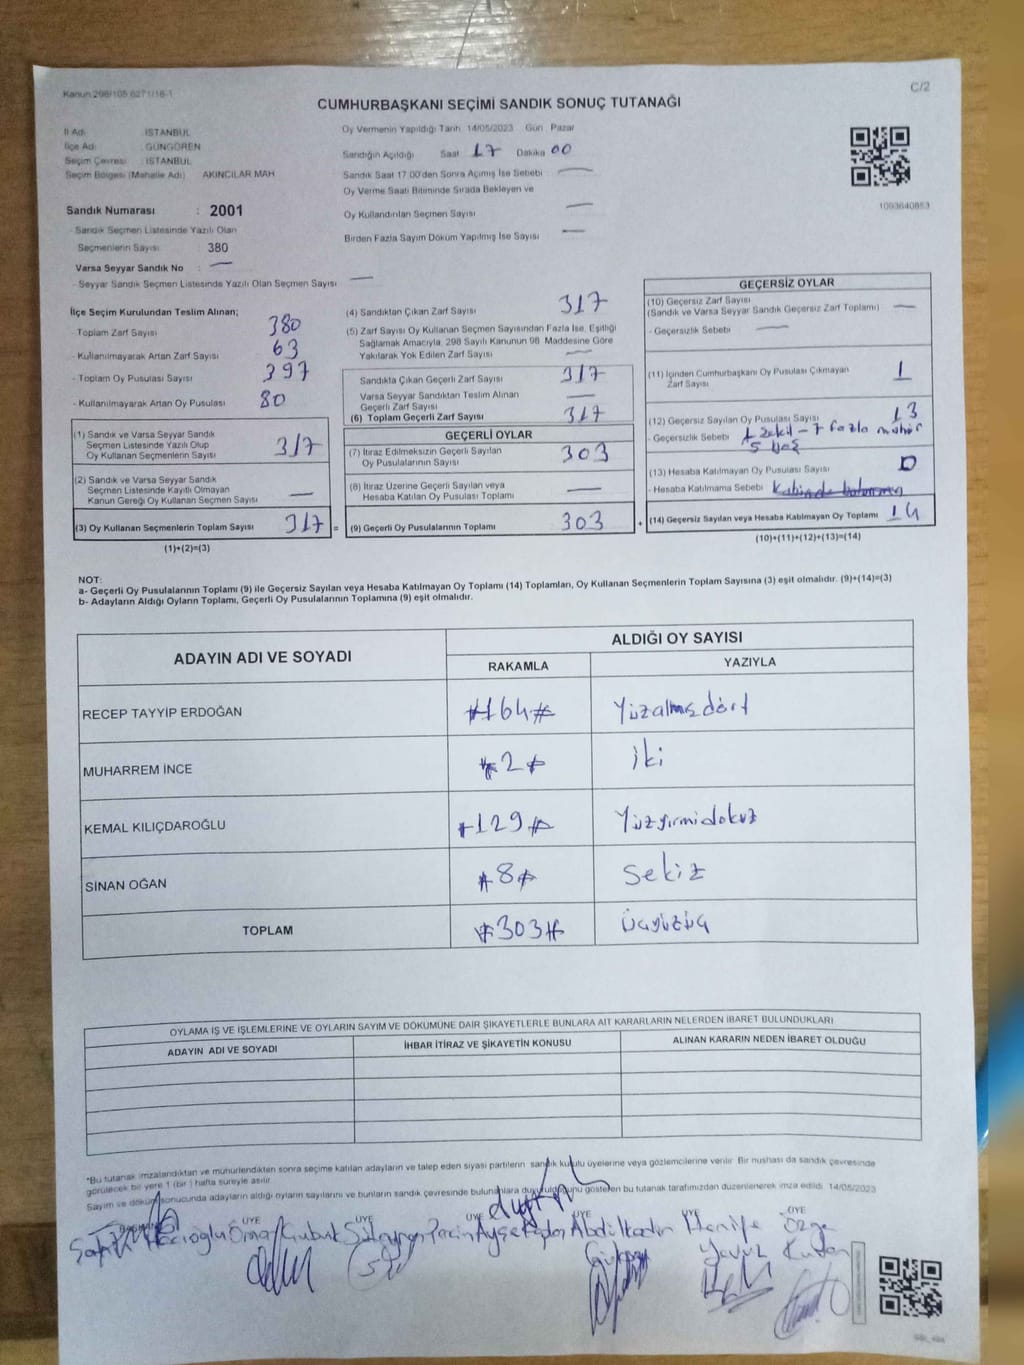 Kanun 298/105 6271/18-1
C/2
CUMHURBAŞKANI SEÇİMİ SANDIK SONUÇ TUTANAĞI
İl Adı : İSTANBUL
İlçe Adı : GÜNGÖREN
Seçim Çevresi : İSTANBUL
Seçim Bölgesi (Mahalle Adı) AKINCILAR MAH
Sandık Numarası : 2001
- Sandık Seçmen Listesinde Yazılı Olan
Seçmenlerin Sayısı : 380
Varsa Seyyar Sandık No : —
- Seyyar Sandık Seçmen Listesinde Yazılı Olan Seçmen Sayısı —
Oy Vermenin Yapıldığı Tarih 14/05/2023 Gün Pazar
Sandığın Açıldığı Saat 17 Dakika 00
Sandık Saat 17.00'den Sonra Açımış İse Sebebi —
Oy Verme Saati Bitiminde Sırada Bekleyen ve
Oy Kullandırılan Seçmen Sayısı —
Birden Fazla Sayım Döküm Yapılmış İse Sayısı —
1093640853
İlçe Seçim Kurulundan Teslim Alınan;
- Toplam Zarf Sayısı 380
- Kullanılmayarak Artan Zarf Sayısı 63
- Toplam Oy Pusulası Sayısı 397
- Kullanılmayarak Artan Oy Pusulası 80
(1) Sandık ve Varsa Seyyar Sandık
Seçmen Listesinde Yazılı Olup
Oy Kullanan Seçmenlerin Sayısı 317
(2) Sandık ve Varsa Seyyar Sandık
Seçmen Listesinde Kayıtlı Olmayan
Kanun Gereği Oy Kullanan Seçmen Sayısı —
(3) Oy Kullanan Seçmenlerin Toplam Sayısı 317 =
(1)+(2)=(3)
(4) Sandıktan Çıkan Zarf Sayısı 317
(5) Zarf Sayısı Oy Kullanan Seçmen Sayısından Fazla İse, Eşitliği
Sağlamak Amacıyla, 298 Sayılı Kanunun 98. Maddesine Göre
Yakılarak Yok Edilen Zarf Sayısı —
Sandıkta Çıkan Geçerli Zarf Sayısı 317
Varsa Seyyar Sandıktan Teslim Alınan
Geçerli Zarf Sayısı —
(6) Toplam Geçerli Zarf Sayısı 317
GEÇERLİ OYLAR
(7) İtiraz Edilmeksizin Geçerli Sayılan
Oy Pusulalarının Sayısı 303
(8) İtiraz Üzerine Geçerli Sayılan veya
Hesaba Katılan Oy Pusulası Toplamı —
(9) Geçerli Oy Pusulalarının Toplamı 303 +
GEÇERSİZ OYLAR
(10) Geçersiz Zarf Sayısı
(Sandık ve Varsa Seyyar Sandık Geçersiz Zarf Toplamı) —
- Geçersizlik Sebebi —
(11) İçinden Cumhurbaşkanı Oy Pusulası Çıkmayan
Zarf Sayısı 1
(12) Geçersiz Sayılan Oy Pusulası Sayısı 13
- Geçersizlik Sebebi 1 Şekil - 7 fazla mühür
5 boş
(13) Hesaba Katılmayan Oy Pusulası Sayısı 0
- Hesaba Katılmama Sebebi
(14) Geçersiz Sayılan veya Hesaba Katılmayan Oy Toplamı 14
(10)+(11)+(12)+(13)=(14)
NOT:
a- Geçerli Oy Pusulalarının Toplamı (9) ile Geçersiz Sayılan veya Hesaba Katılmayan Oy Toplamı (14) Toplamları, Oy Kullanan Seçmenlerin Toplam Sayısına (3) eşit olmalıdır. (9)+(14)=(3)
b- Adayların Aldığı Oyların Toplamı, Geçerli Oy Pusulalarının Toplamına (9) eşit olmalıdır.
ADAYIN ADI VE SOYADI
ALDIĞI OY SAYISI
RAKAMLA YAZIYLA
RECEP TAYYİP ERDOĞAN #164# Yüzaltmışdört
MUHARREM İNCE #2# iki
KEMAL KILIÇDAROĞLU #129# Yüzyirmidokuz
SİNAN OĞAN #8# Sekiz
TOPLAM #303# üçyüzüç
OYLAMA İŞ VE İŞLEMLERİNE VE OYLARIN SAYIM VE DÖKÜMÜNE DAİR ŞİKAYETLERLE BUNLARA AİT KARARLARIN NELERDEN İBARET BULUNDUKLARI
ADAYIN ADI VE SOYADI İHBAR İTİRAZ VE ŞİKAYETİN KONUSU ALINAN KARARIN NEDEN İBARET OLDUĞU
*Bu tutanak imzalandıktan ve mühürlendikten sonra seçime katılan adayların ve talep eden siyasi partilerin sandık kurulu üyelerine veya gözlemcilerine verilir. Bir nüshası da sandık çevresinde
görülecek bir yere 1 (bir) hafta süreyle asılır.
Sayım ve döküm sonucunda adayların aldığı oyların sayılarını ve bunların sandık çevresinde bulunanlara duyurulduğunu gösteren bu tutanak tarafımızdan düzenlenerek imza edildi. 14/05/2023
ÜYE ÜYE ÜYE ÜYE ÜYE
Hanife Özge
Yavuz